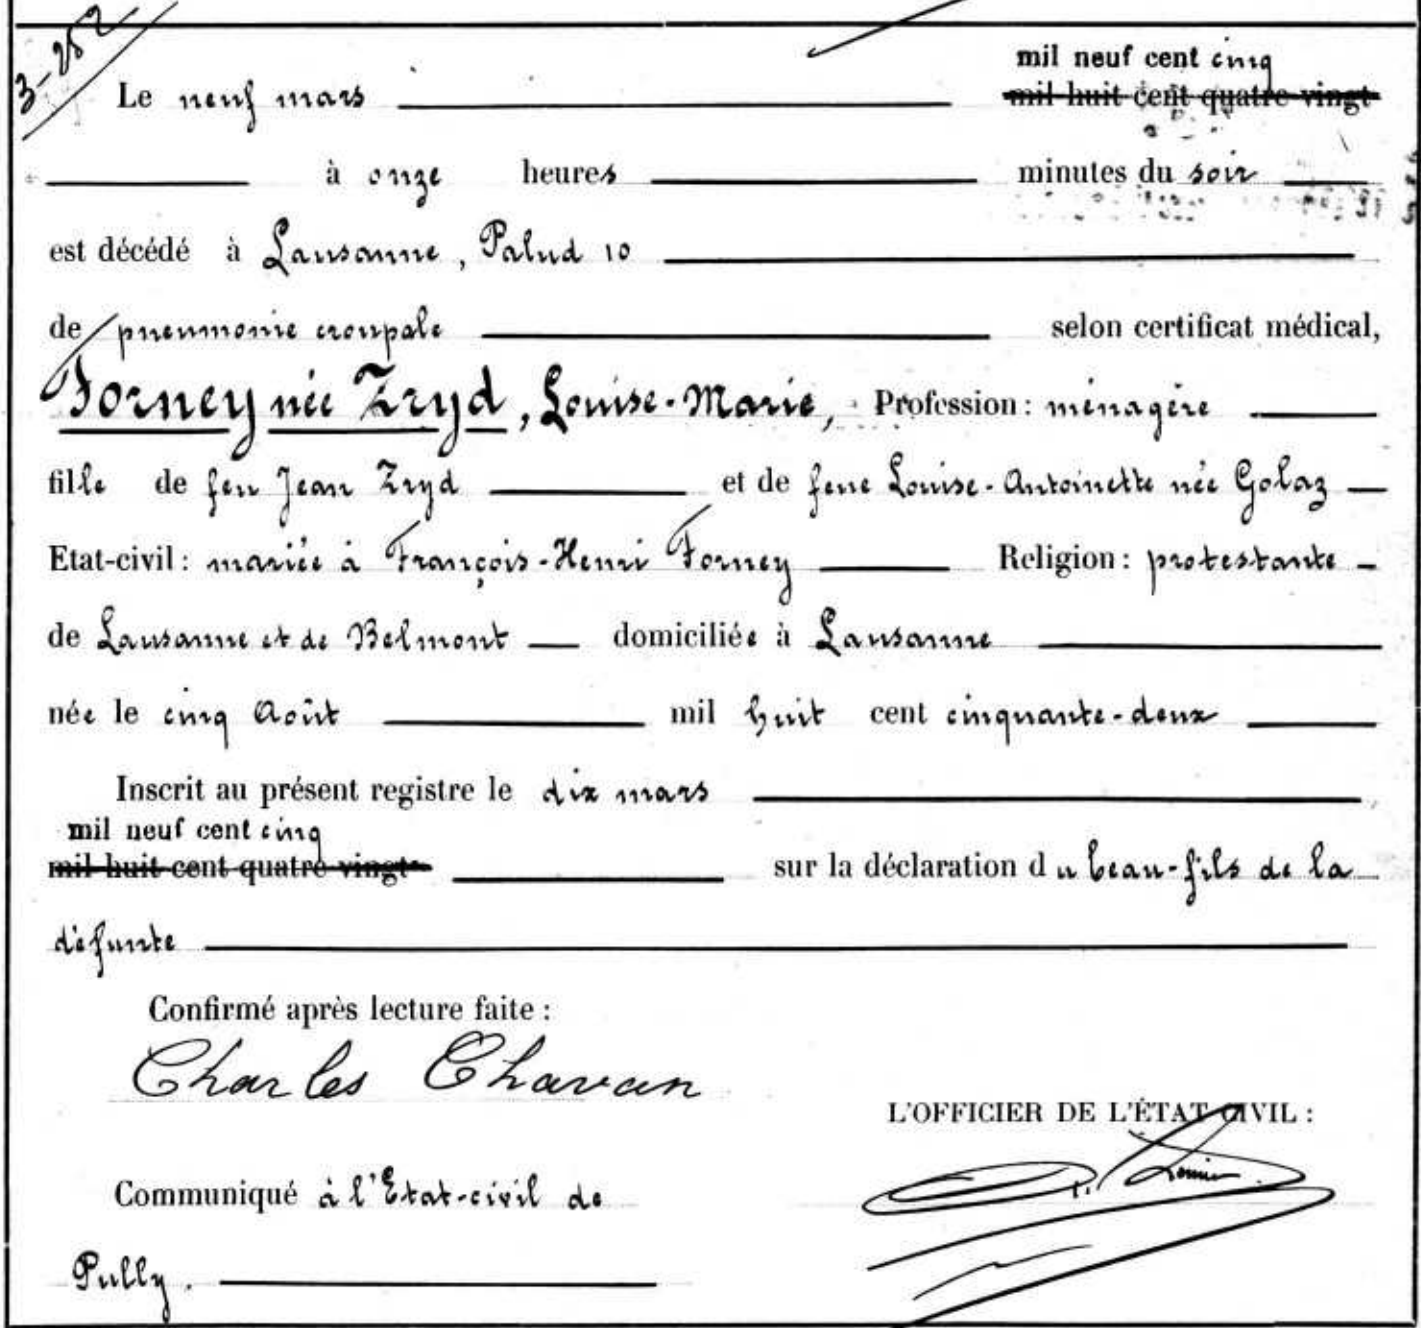 Le neuf mars mil neuf cent cinq
mil huit cent quatre vingt
à onze heures minutes du soir
est décédé à Lausanne, Palud 10
de pneumonie croupale selon certificat médical,
Forney née Zryd, Louise-Marie, Profession: ménagère
fille de feu Jean Zryd et de feue Louise-Antoinette née Golaz
Etat-civil: mariée à François-Henri Forney Religion: protestante
de Lausanne et de Belmont domiciliée à Lausanne
née le cinq Août mil huit cent cinquante-deux
Inscrit au présent registre le dix mars
mil neuf cent cinq
mil huit cent quatre vingt sur la déclaration du beau-fils de la
défunte
Confirmé après lecture faite:
Charles Chavan
L'OFFICIER DE L'ÉTAT CIVIL:
Communiqué à l'Etat-civil de
Pully.